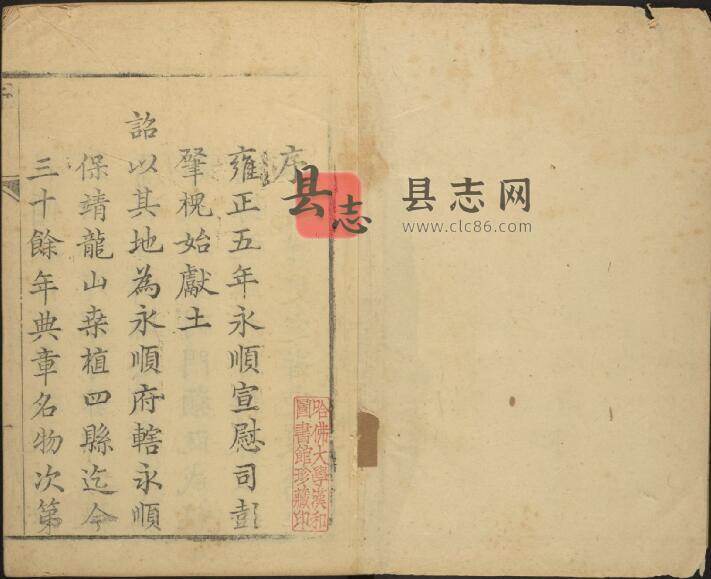 序
雍正五年永順宣慰司彭
肇槐始獻土
詔以其地為永順府轄永順
保靖龍山桑植四縣迄今
三十餘年典章名物次第
哈佛大學漢和
圖書館珍藏印
县志
县志网
www.clc86.com